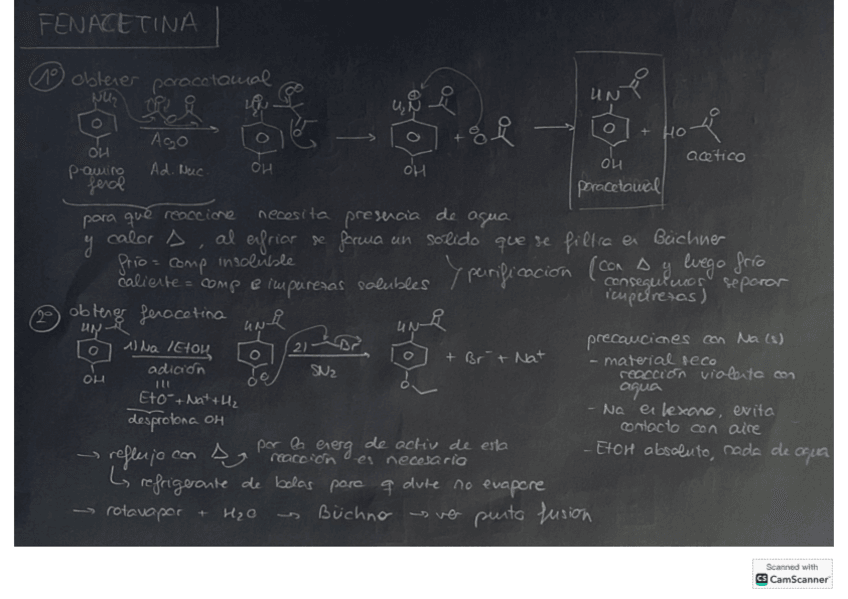 FENACETINA
1º obtener paracetamol
NH₂
Ac₂O
OH
p-amino
fenol
Ad. Nuc
OH
H₂N
OH
HN
OH
paracetamol
HO
acético
para que reaccione necesita presencia de agua
y calor Δ, al enfriar se forma un solido que se filtra en Büchner
frío = comp insoluble
caliente = comp e impurezas solubles
purificación (con Δ y luego frío
conseguimos separar
impurezas)
2º obtener fenacetina
HN
OH
1) Na / EtOH
adición
EtO⁻ + Na⁺ + H₂
desprotona OH
HN
O⊖
2) Br
SN₂
HN
O
+ Br⁻ + Na⁺
precauciones con Na (s)
- material seco
reacción violenta con
agua
- Na en hexano, evita
contacto con aire
- EtOH absoluto, nada de agua
→ reflujo con Δ
por la energ de activ de esta
reacción es necesaria
refrigerante de bolas para q dvte no evapore
→ rotavapor + H₂O → Büchner → ver punto fusion
Scanned with
CS CamScanner